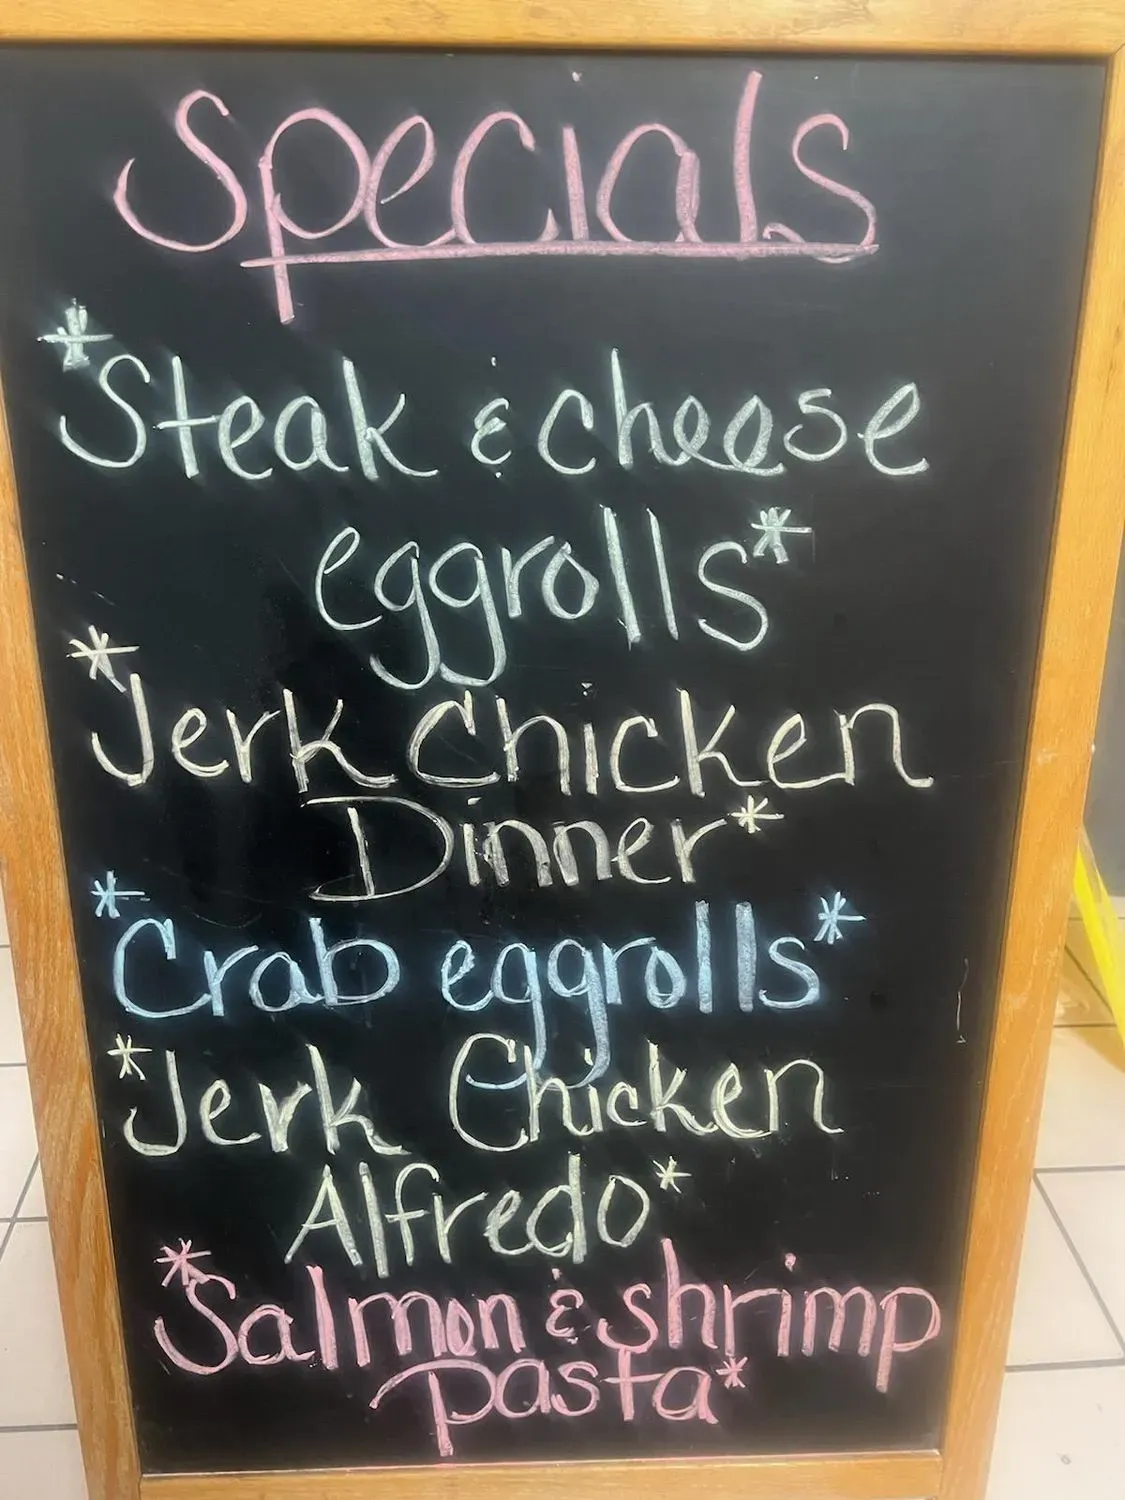 Specials
*Steak & cheese
eggrolls*
*Jerk Chicken
Dinner*
*Crab eggrolls*
*Jerk Chicken
Alfredo*
*Salmon & shrimp
pasta*